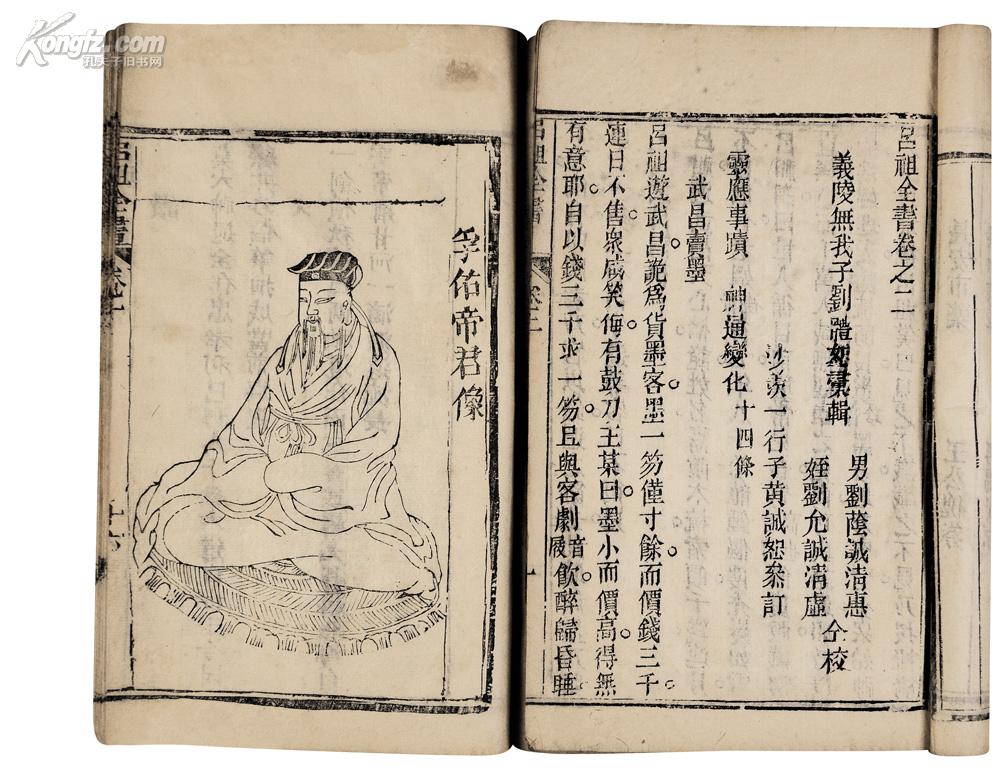 Kongfz.com
孔夫子旧书网
呂祖全書卷之二
義陵無我子劉體恕彙輯
男劉蔭誠清惠
姪劉允誠清虛
仝校
沙羨一行子黃誠恕參訂
靈應事蹟 神通變化 十四條
武昌賣墨
呂祖遊武昌詭為貨墨客墨一笏僅寸餘而價錢三千
連日不售衆咸笑侮有鼓刀王某曰墨小而價高得無
有意耶自以錢三千求一笏且與客劇飲醉歸昏睡
音
屐
呂祖全書
卷二
一
孚佑帝君像
呂祖全書
卷之
十六